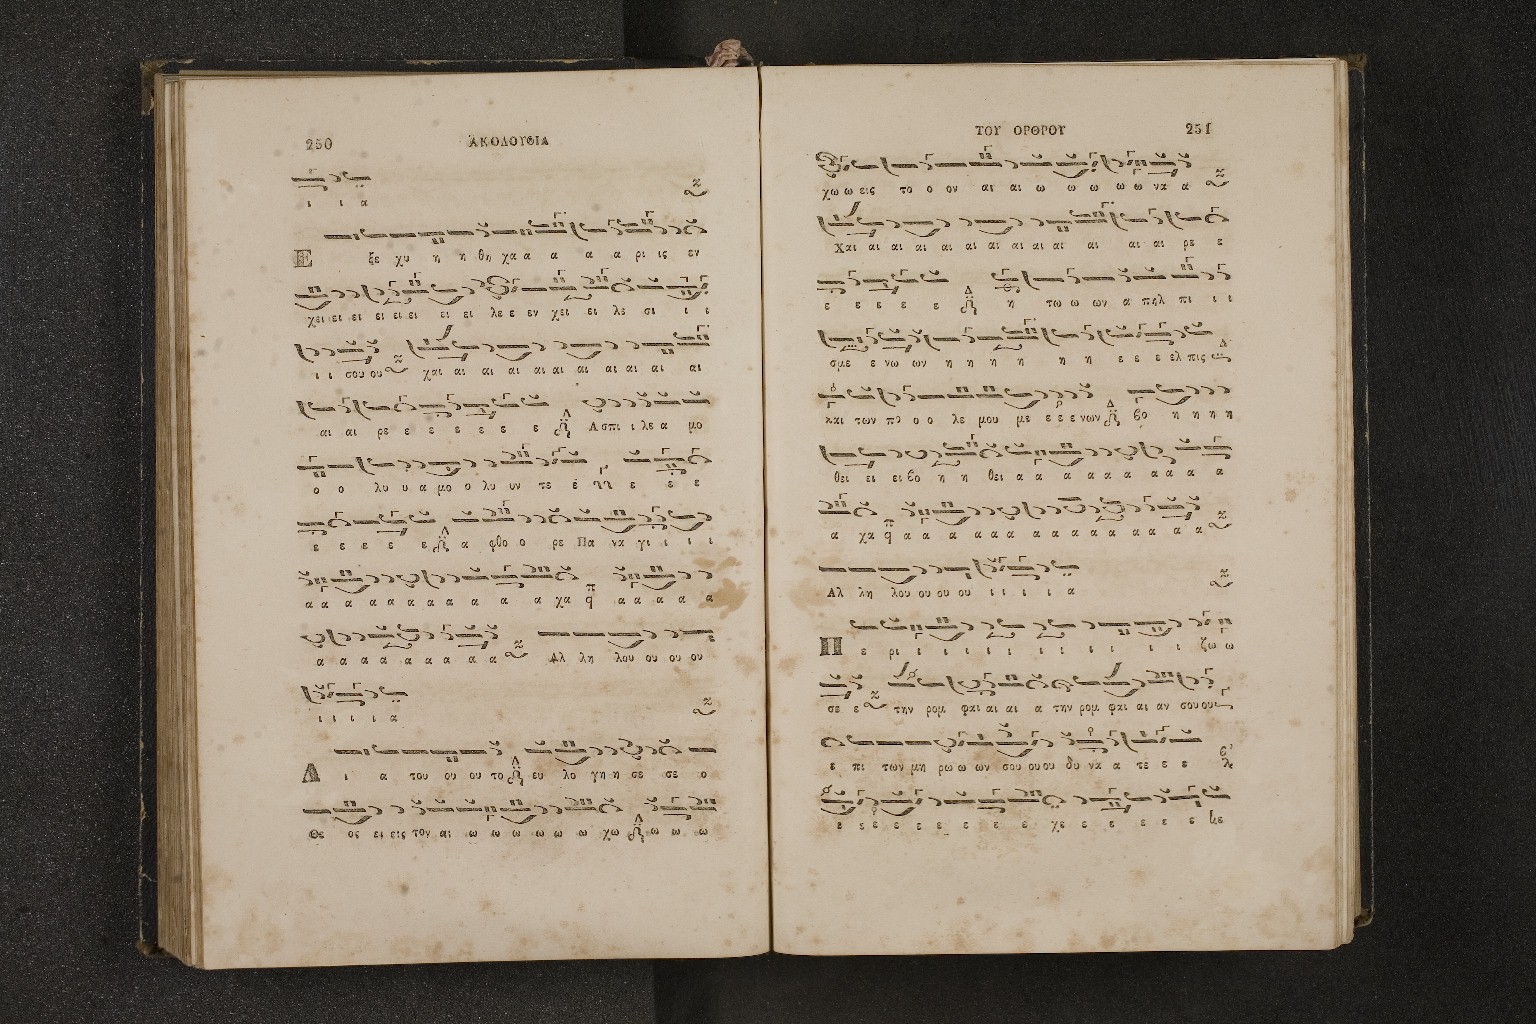 250 ΑΚΟΛΟΥΘΙΑ
ι ι α
Ε ξε χυ η η θη χα α α α α ρι ις εν
χει ει ει ει ει ει ει ει λε ε εν χει ει λε σι ι ι
ι ι σου ου χαι αι αι αι αι αι αι αι αι αι αι
αι αι ρε ε ε ε ε ε ε Α σπι ι λε α μο
ο ο λυ υ α μο ο λυ υν τε ε ε ε ε
ε ε ε ε ε α φθο ο ρε Πα να γι ι ι ι
α α α α α α α α α α α χα α α α α α
α α α α α α α α α Αλ λη λου ου ου ου
ι ι ι ι α
Δ ι α του ου ου το ευ λο γη η σε σε ο
Θε ος ει εις τον αι ω ω ω ω ω ω χω ω ω ω
ΤΟΥ ΟΡΘΡΟΥ 251
χω ω εις το ο ον αι αι ω ω ω ω ω να α
Χαι αι αι αι αι αι αι αι αι αι αι αι αι ρε ε
ε ε ε ε ε η τω ω ων α πηλ πι ι ι
σμε ε νω ων η η η η η η ε ε ε ελ πις
και των πο ο ο λε μου με ε ε ε νων βο η η η η
θει ει ει βο η η θει α α α α α α α α α α
α χα α α α α α α α α α α α α α
Αλ λη λου ου ου ου ι ι ι ι α
Π ε ρι ι ι ι ι ι ι ι ι ι ι ζω ω
σε ε την ρομ φαι αι αι α την ρομ φαι αι αν σου ου
ε πι των μη ρω ω ων σου ου ου δυ να α τε ε ε
ε ε ε ε ε ε ε ε ε χε ε ε ε ε ε με